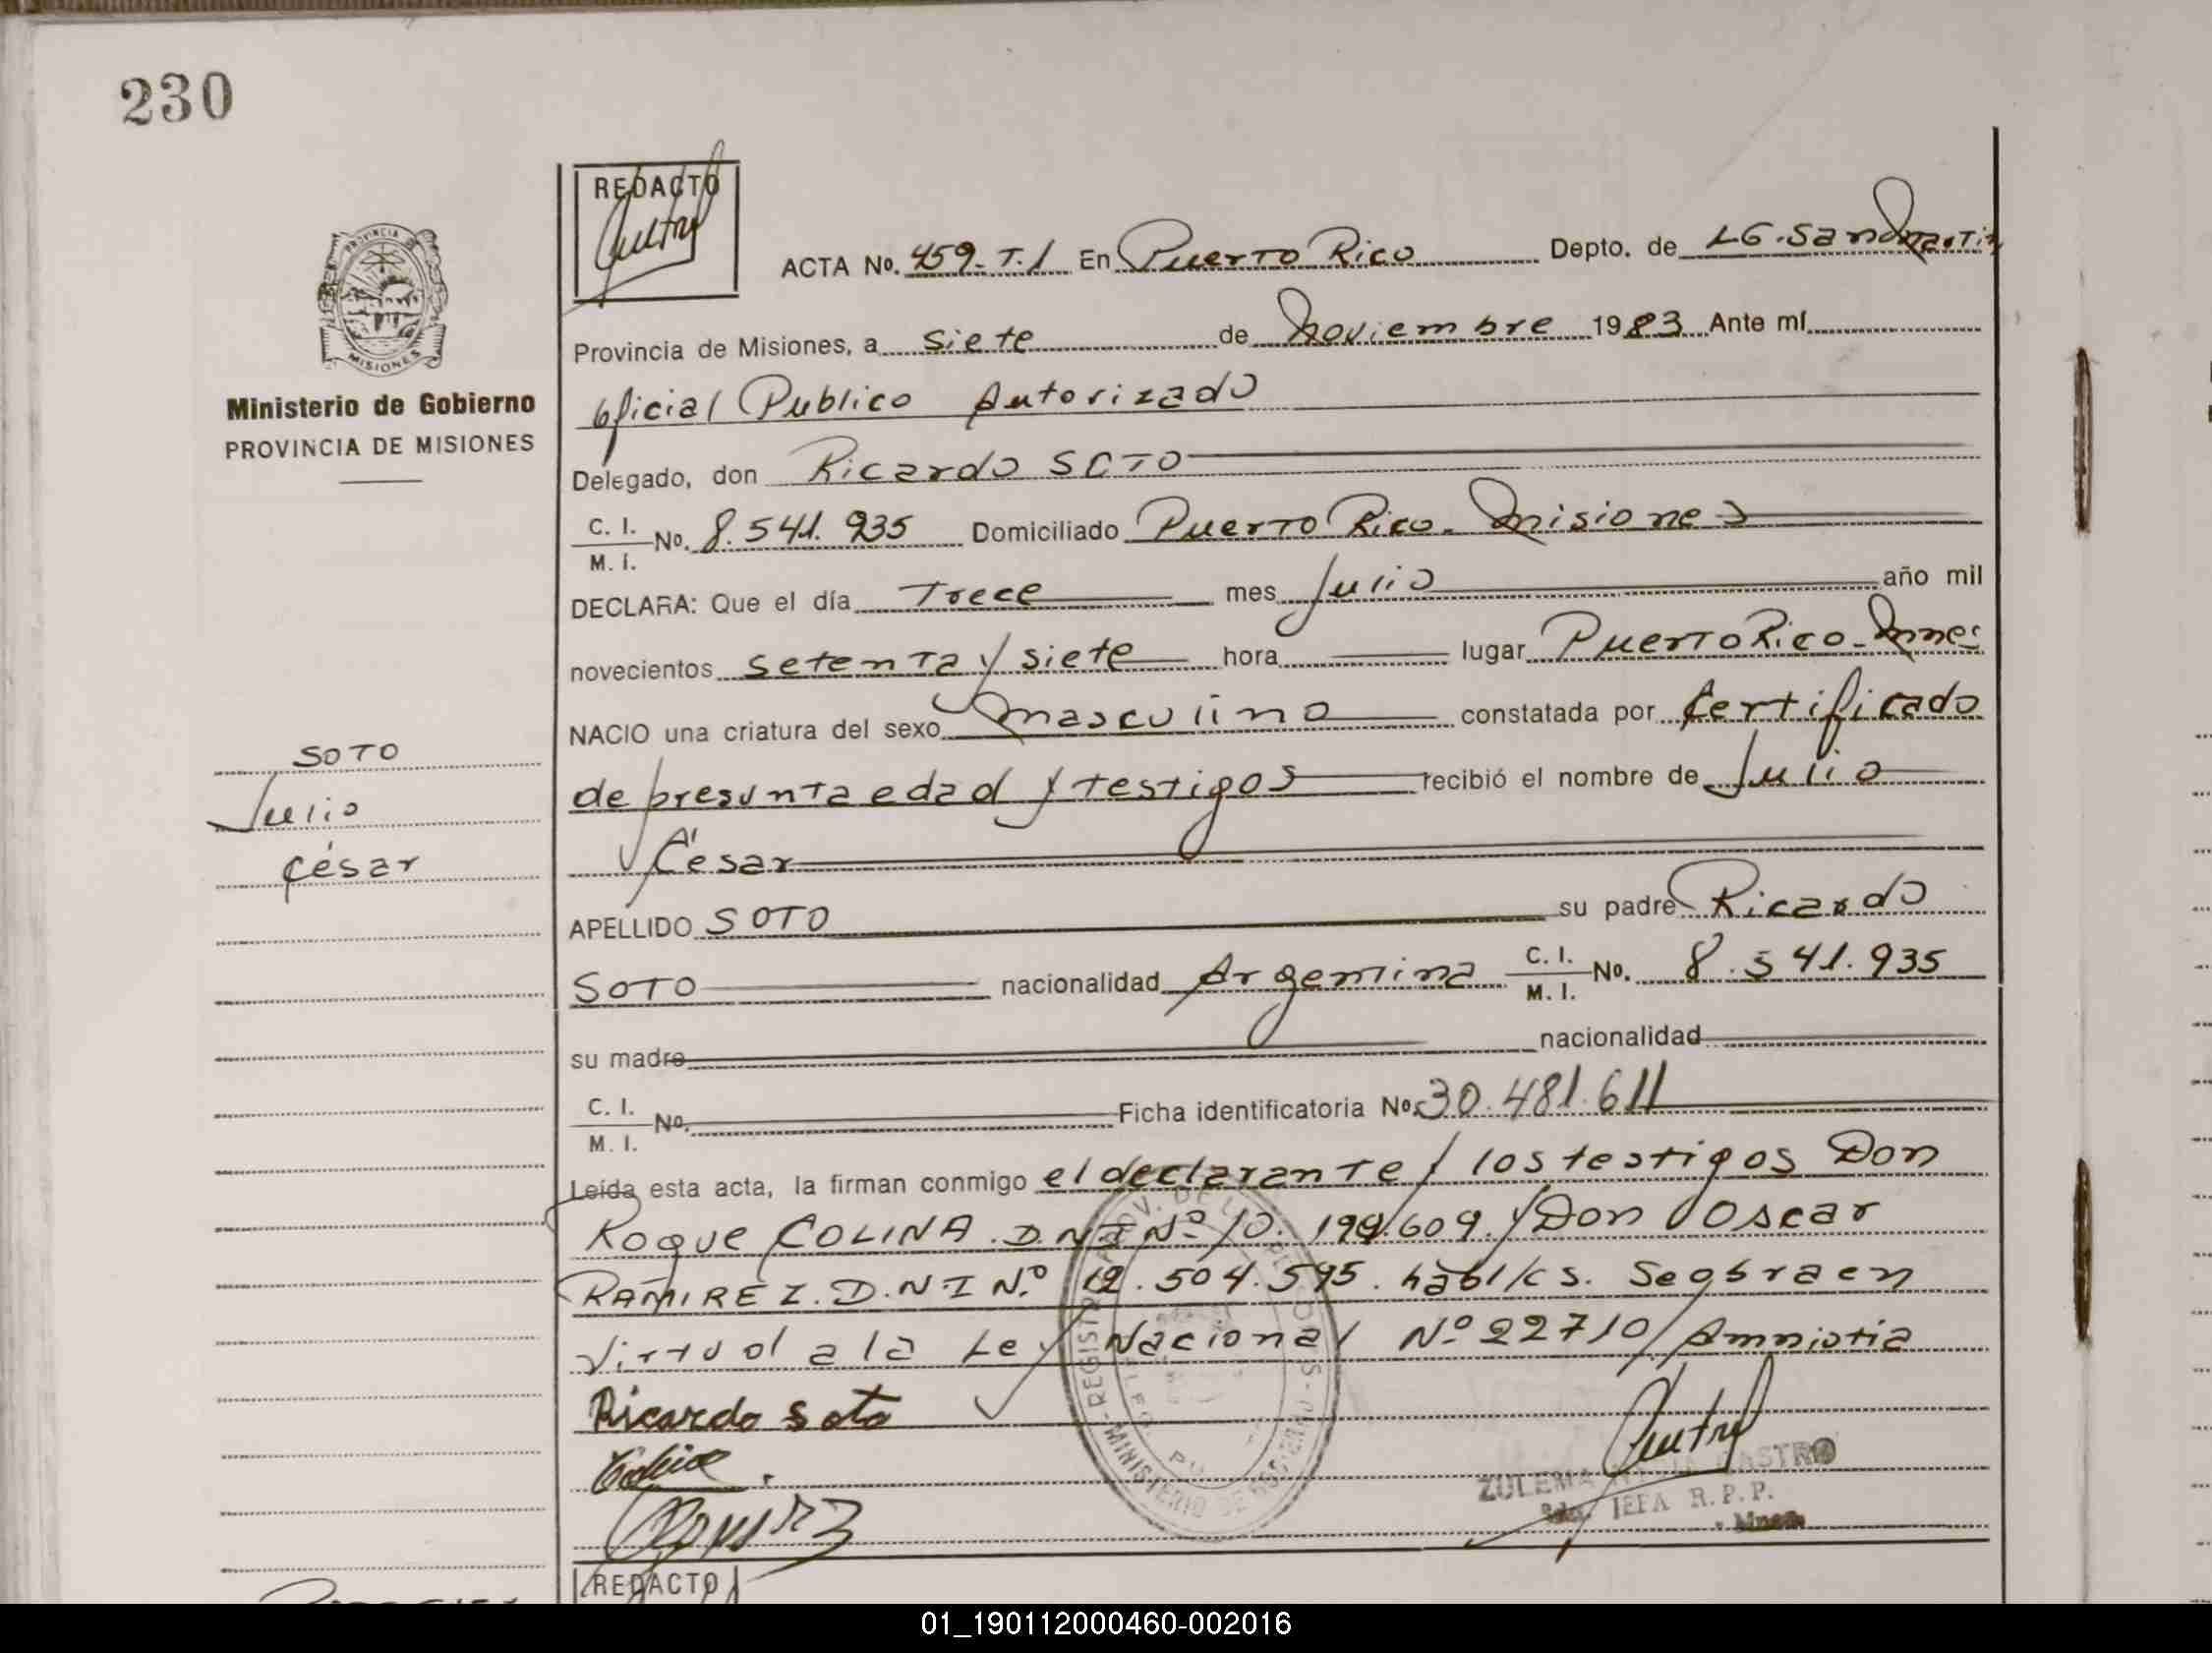 230
REDACTO
ACTA No. 459-T.1 En Puerto Rico Depto. de LG. San Martin
PROVINCIA
MISIONES
Provincia de Misiones, a siete de Noviembre 1983 Ante mí
Ministerio de Gobierno
PROVINCIA DE MISIONES
Oficial Publico Autorizado
Delegado, don Ricardo SOTO
C. I.
M. I. No. 8.541.935 Domiciliado Puerto Rico. Misiones
DECLARA: Que el día Trece mes Julio año mil
novecientos setenta y siete hora lugar Puerto Rico - Mnes
NACIO una criatura del sexo masculino constatada por Certificado
de presunta edad y testigos recibió el nombre de Julio
César
SOTO
Julio
César
APELLIDO SOTO su padre Ricardo
SOTO nacionalidad Argentina C. I.
M. I. No. 8.541.935
su madre nacionalidad
C. I.
M. I. No. Ficha identificatoria No. 30.481.611
Leída esta acta, la firman conmigo el declarante y los testigos Don
Roque COLINA. D.N.I Nº 10. 609. y Don Oscar
RAMIREZ. D.N.I N.º 12.504.595. hábl/cs. Se obra en
Virtud a la Ley Nacional Nº 22710/Amnistia
Ricardo soto
Colina
ZULEMA CASTRO
JEFA R.P.P.
REGISTR
MINISTERIO DE GOBIERNO
REDACTO
01_190112000460-002016